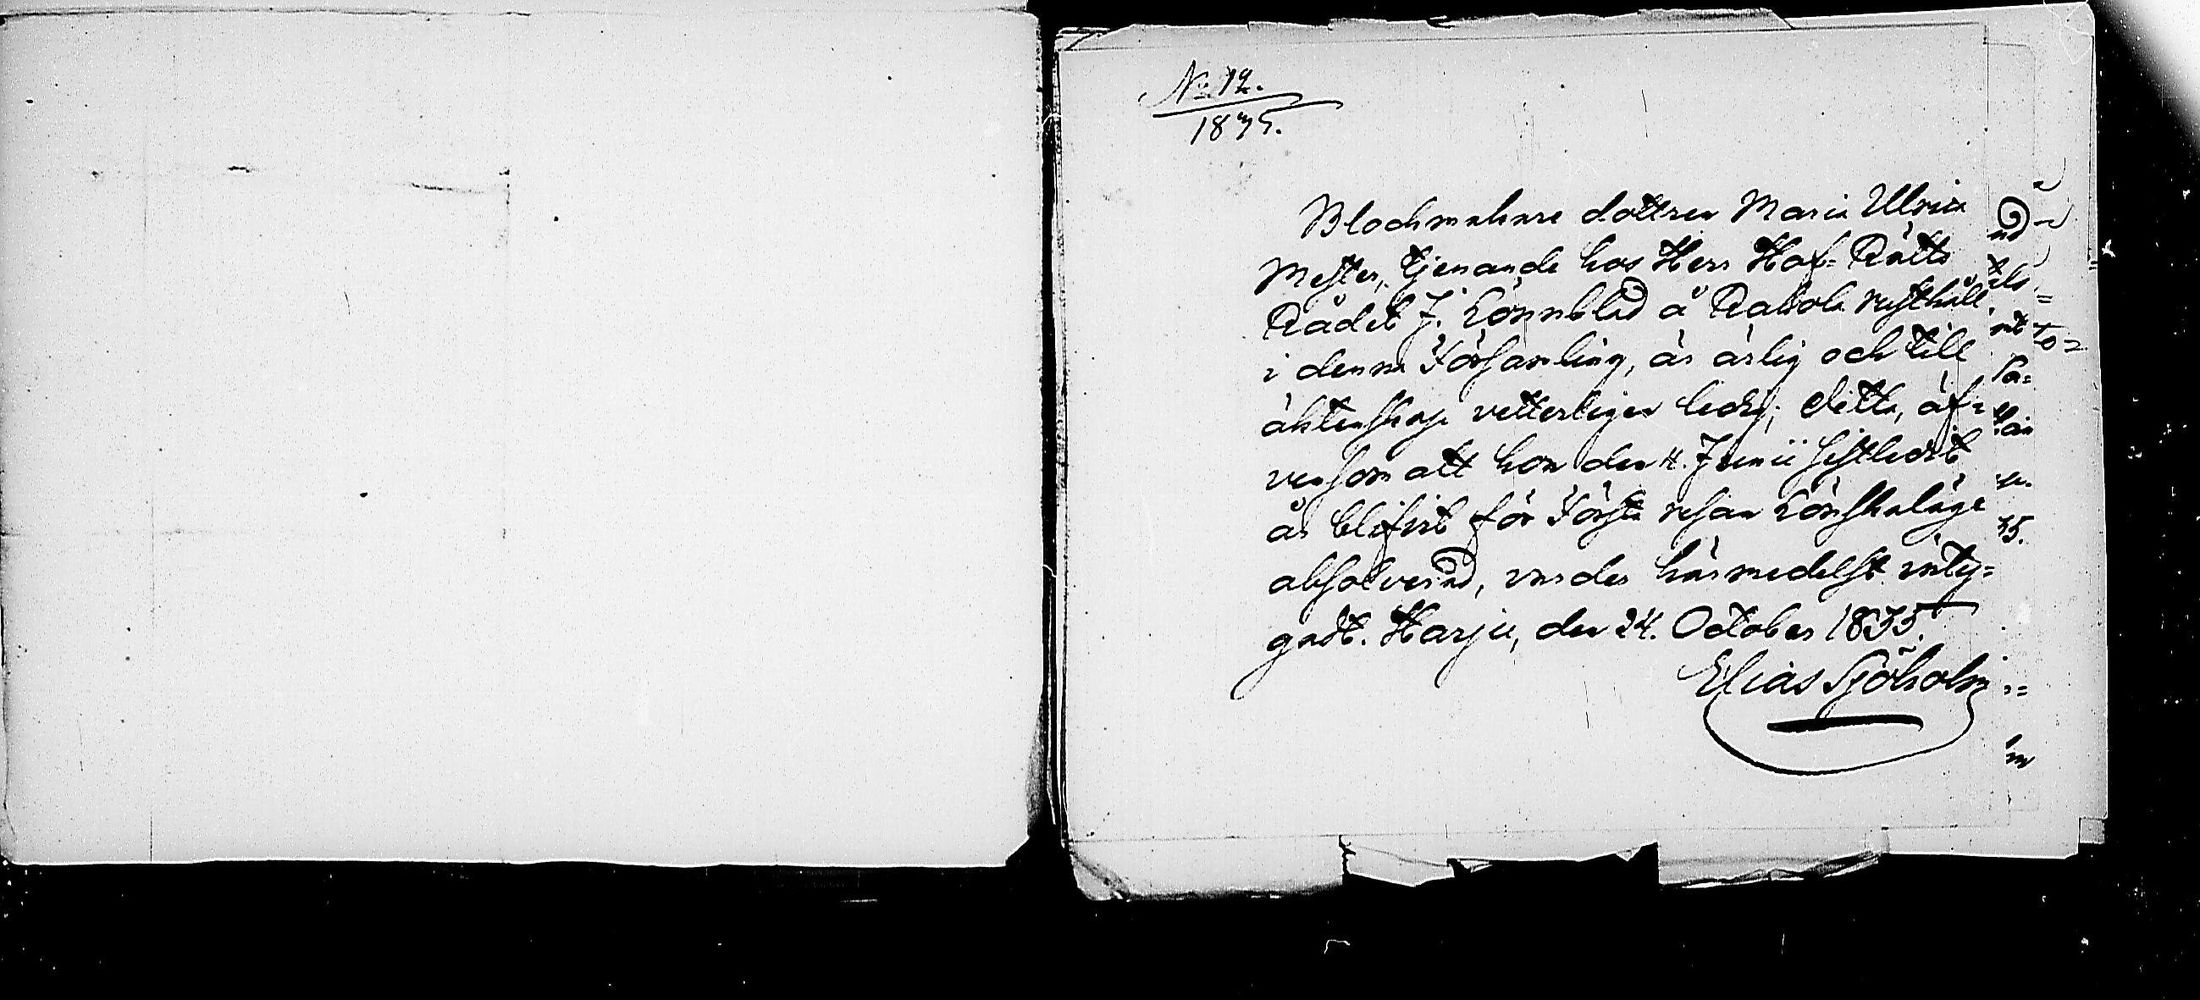 No 12.
1835.
Blockmakare dottren Maria Ulrica
Mester, tjenande hos Herr Hof-Rätts
Rådet J. Lönnblad å Rabola rusthåll
i denna Församling, är ärlig och till
äktenskap vetterligen ledig; detta, äf-
vensom att hon den 4. Junii sistledit
år blifvit för Första resan Lönskaläge
absolverad, varder härmedelst inty-
gadt. Harju, den 24. October 1835.
Elias Sjöholm